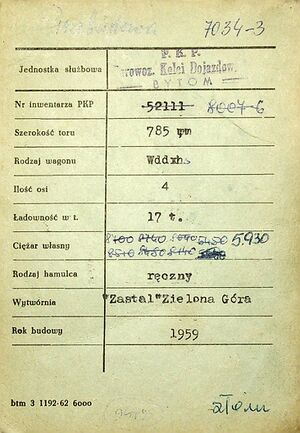 7034-3
P. K. P.
Jednostka służbowa Parowoz. Kolei Dojazdow.
BYTOM
Nr inwentarza PKP 52111 8007-6
Szerokość toru 785 mm
Rodzaj wagonu Wddxh
Ilość osi 4
Ładowność w t. 17 t.
8100 8740 8690 5450 5.930
Ciężar własny
8510 8450 8140
Rodzaj hamulca ręczny
Wytwórnia "Zastal" Zielona Góra
Rok budowy 1959
btm 3 1192-62 6000
złom